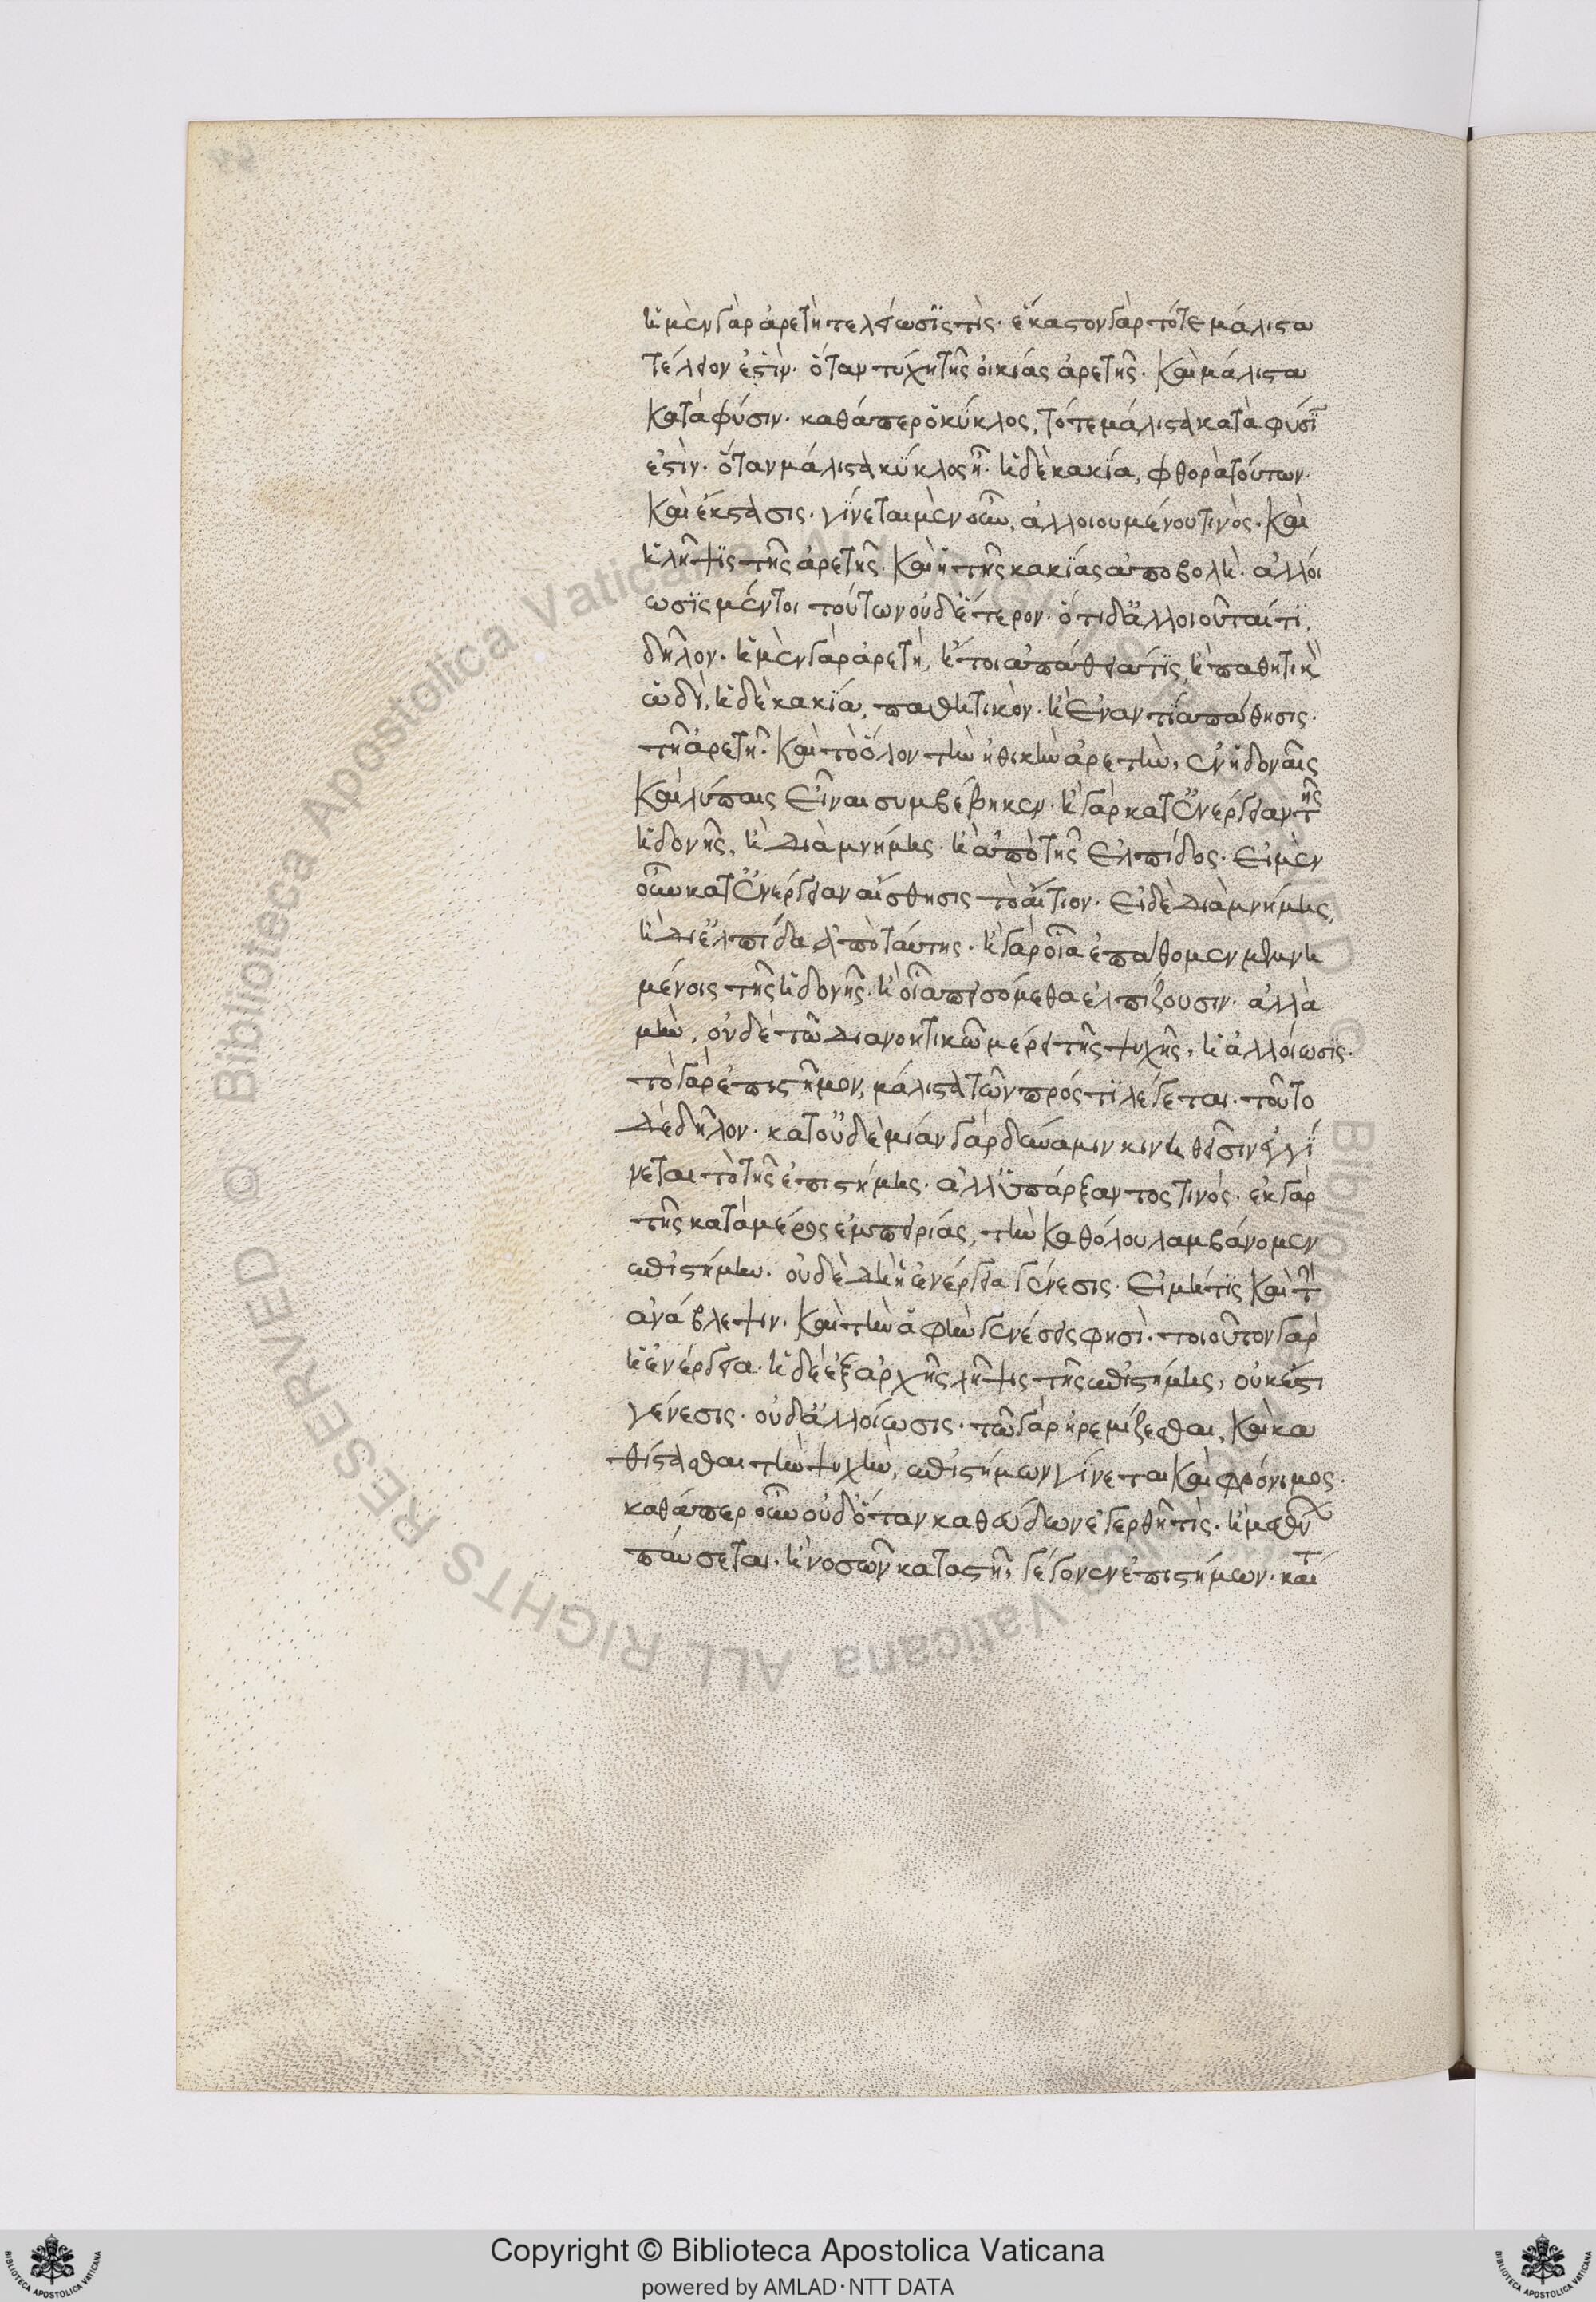 ἡ μὲν γὰρ ἀρετὴ τελείωσίς τὶς· ἕκαστον γὰρ τότε μάλιστα
τέλειον ἐστὶν· ὅταν τύχη τῆς οἰκείας ἀρετῆς· Καὶ μάλιστα
κατὰ φύσιν· καθάπερ ὁ κύκλος, τότε μάλιστα κατὰ φύσϊ
ἐστὶν· ὅταν μάλιστα κύκλος ῆ· ἡ δὲ κακία, φθορὰ τούτων·
Καὶ ἔκστασις· γίνεται μὲν οὖν, ἀλλοιουμένου τινὸς· Καὶ
ἡ λῆψις τῆς ἀρετῆς· Καὶ ἡ τῆς κακίας ἀποβολὴ· ἀλλοί
ωσις μέντοι τούτων οὐδέτερον· ὅτι δ' ἀλλοιοῦταί τι,
δῆλον· ἡ μὲν γὰρ ἀρετὴ, ἤτοι ἀπάθεια τίς, ἢ παθητικὴ
ὡδί, ἡ δὲ κακία, παθητικὸν· ἢ ἐναντία πάθησις·
τῆ ἀρετῆ· Καὶ τὸ ὅλον τὴν ἠθικὴν ἀρετὴν, ἐν ἡδοναῖς
Καὶ λύπαις εἶναι συμβέβηκεν· ἢ γὰρ κατ' ἐνέργειαν τῆς
ἡδονῆς, ἢ διὰ μνήμης· ἢ ἀπὸ τῆς ἐλπίδος· εἰ μὲν
οὖν κατ' ἐνέργειαν αἴσθησις τὸ αἴτιον· εἰ δὲ διὰ μνήμης,
ἢ δι' ἐλπίδα ἀπὸ ταύτης· ἢ γὰρ οἷα ἐπάθομεν μεμνη
μένοις τῆς ἡδονῆς· ἢ οἷα πεισόμεθα ἐλπίζουσιν· ἀλλὰ
μὴν, οὐδὲ τῶ διανοητικῶ μέρει τῆς ψυχῆς, ἡ ἀλλοίωσις·
τὸ γὰρ ἐπιστῆμον, μάλιστα τῶν πρός τι λέγεται· τοῦτο
δὲ δῆλον· κατ' οὐδὲ μίαν γὰρ δύναμιν κινηθεῖσιν ἐγγί
νεται τὸ τῆς ἐπιστήμης· ἀλλ' ὑπάρξαντος τινός· ἐκ γὰρ
τῆς κατὰ μέρος ἐμπειρίας, τὴν καθόλου λαμβάνομεν
ἐπιστήμην· οὐδὲ δὴ ἡ ἐνέργεια γένεσις· εἰ μή τις Καὶ τὴν
ἀνάβλεψιν· Καὶ τὴν ἁφὴν γενέσεις φησὶ· τοιοῦτον γὰρ
ἡ ἐνέργεια· ἡ δὲ ἐξ ἀρχῆς λῆψις τῆς ἐπιστήμης, οὐκ ἔστι
γένεσις· οὐδ' ἀλλοίωσις· τῶ γὰρ ἠρεμίζεσθαι, Καὶ κα
θίστασθαι τὴν ψυχὴν, ἐπιστήμων γίνεται Καὶ φρόνιμος·
καθάπερ οὖν οὐδ' ὅταν καθεύδων ἐγερθῆ τὶς· ἢ μεθύ͂
παύσεται· ἢ νοσῶν καταστῆ, γέγονεν ἐπιστήμων· καίτ